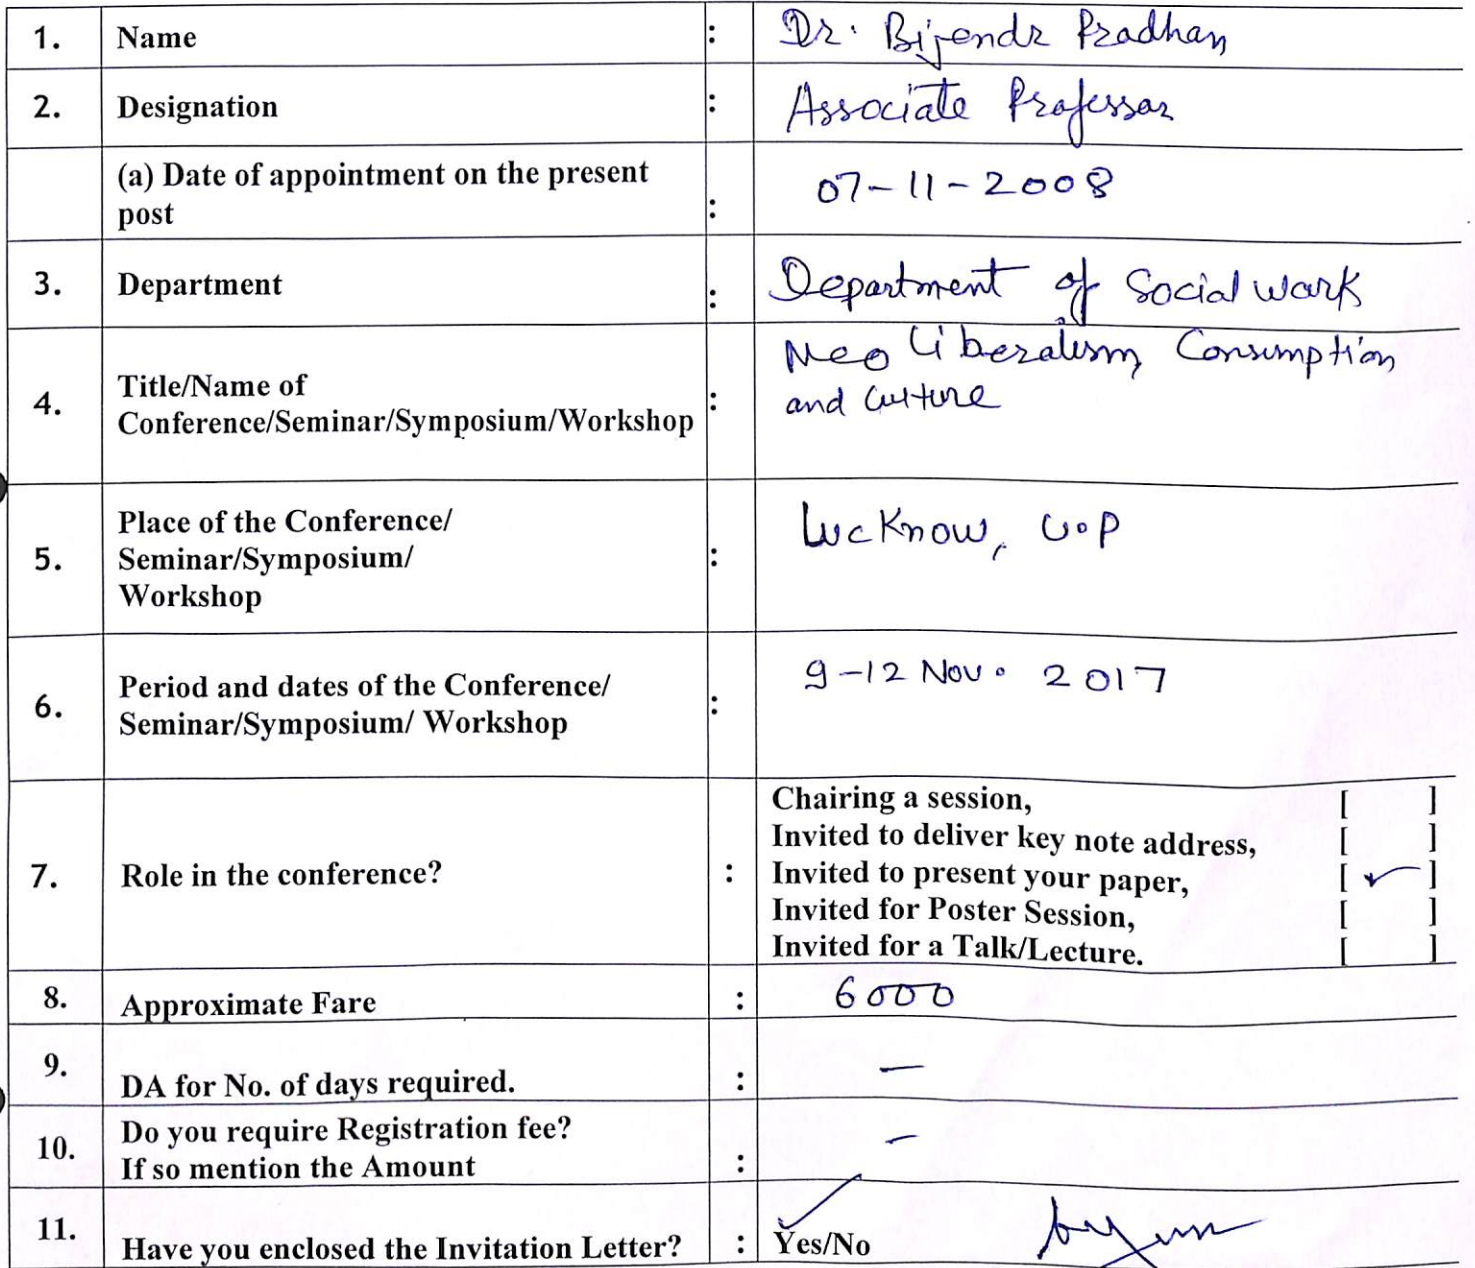 1. Name : Dr. Bijendr Pradhan
2. Designation : Associate Professor
(a) Date of appointment on the present
post : 07-11-2008
3. Department : Department of Social Work
4. Title/Name of
Conference/Seminar/Symposium/Workshop : Neo Liberalism, Consumption
and Culture
5. Place of the Conference/
Seminar/Symposium/
Workshop : Lucknow, U.P
6. Period and dates of the Conference/
Seminar/Symposium/ Workshop : 9-12 Nov. 2017
7. Role in the conference? :
Chairing a session, [ ]
Invited to deliver key note address, [ ]
Invited to present your paper, [ ✓ ]
Invited for Poster Session, [ ]
Invited for a Talk/Lecture. [ ]
8. Approximate Fare : 6000
9. DA for No. of days required. : —
10. Do you require Registration fee?
If so mention the Amount : —
11. Have you enclosed the Invitation Letter? : ✓ Yes/No